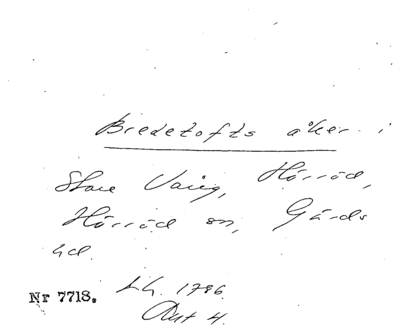 Bredetofts åker i
Store Vang, Hörröd,
Hörröd sn, Gärds
hd.
Nr 7718. LG. 1786.
Akt 4.